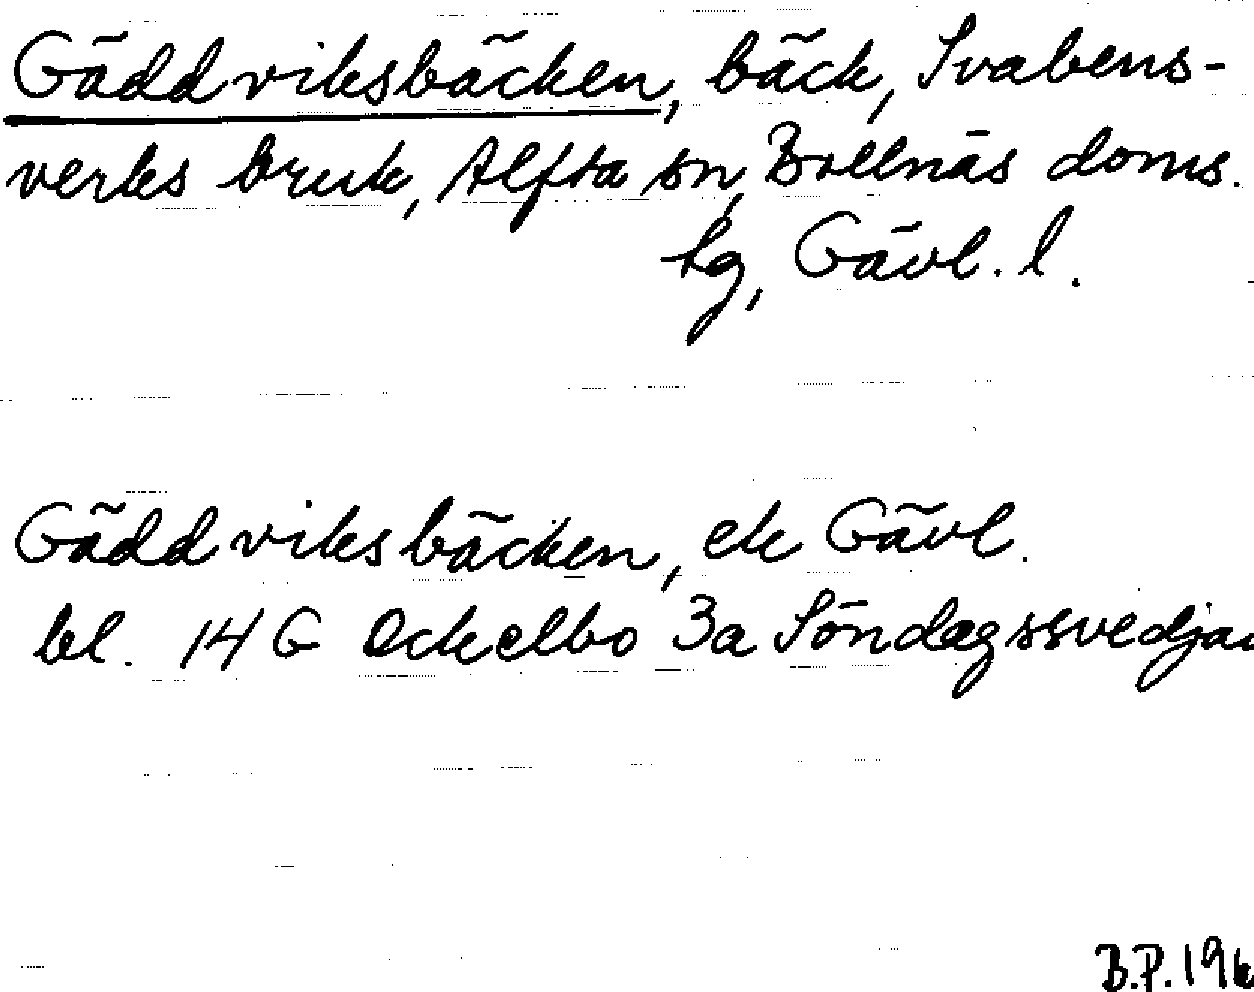 Gäddviksbäcken, bäck, Svabens-
verks bruk, Alfta sn, Bollnäs doms.
hg, Gävl. l.
Gäddviksbäcken, ek Gävl.
bl. 14 G Ockelbo 3a Söndagssvedjan
B.P. 196